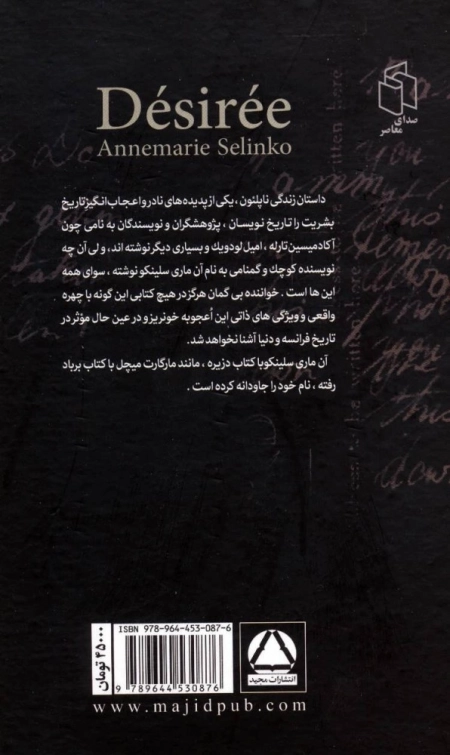 Désirée
Annemarie Selinko
صدای
معاصر
داستان زندگی ناپلئون ، یکی از پدیده‌های نادر و اعجاب انگیز تاریخ
بشریت را تاریخ نویسان ، پژوهشگران و نویسندگان به نامی چون
آکادمیسین تارله ، امیل لودویک و بسیاری دیگر نوشته اند ، و لی آن چه
نویسنده کوچک و گمنامی به نام آن ماری سلینکو نوشته ، سوای همه
این ها است . خواننده بی گمان هرگز در هیچ کتابی این گونه با چهره
واقعی و ویژگی های ذاتی این اُعجوبه خونریز و در عین حال مؤثر در
تاریخ فرانسه و دنیا آشنا نخواهد شد.
آن ماری سلینکو با کتاب دزیره ، مانند مارگارت میچل با کتاب برباد
رفته ، نام خود را جاودانه کرده است .
ISBN 978-964-453-087-6
9 789644 530876
۴۵۰۰۰ تومان
انتشارات مجید
www.majidpub.com